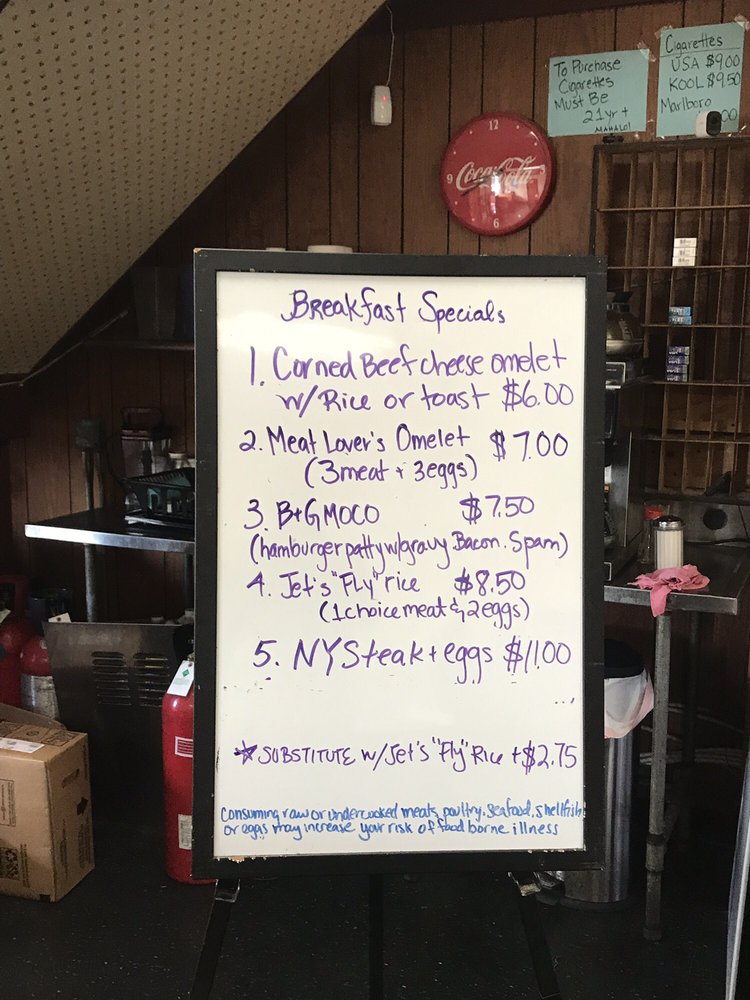 To Purchase
Cigarettes
Must Be
21yr +
MAHALO!
Cigarettes
USA $9.00
KOOL $9.50
Marlboro
12
9
6
Coca-Cola
Breakfast Specials
1. Corned Beef cheese omelet
w/Rice or toast $6.00
2. Meat Lover's Omelet $7.00
(3 meat + 3 eggs)
3. B+G MOCO $7.50
(hamburger patty w/gravy Bacon. Spam)
4. Jet's "FLy" rice $8.50
(1 choice meat & 2 eggs)
5. NY Steak + eggs $11.00
☆ SUBSTITUTE w/Jet's "Fly" Rice + $2.75
Consuming raw or undercooked meats, poultry, seafood, shellfish
or eggs may increase your risk of food borne illness